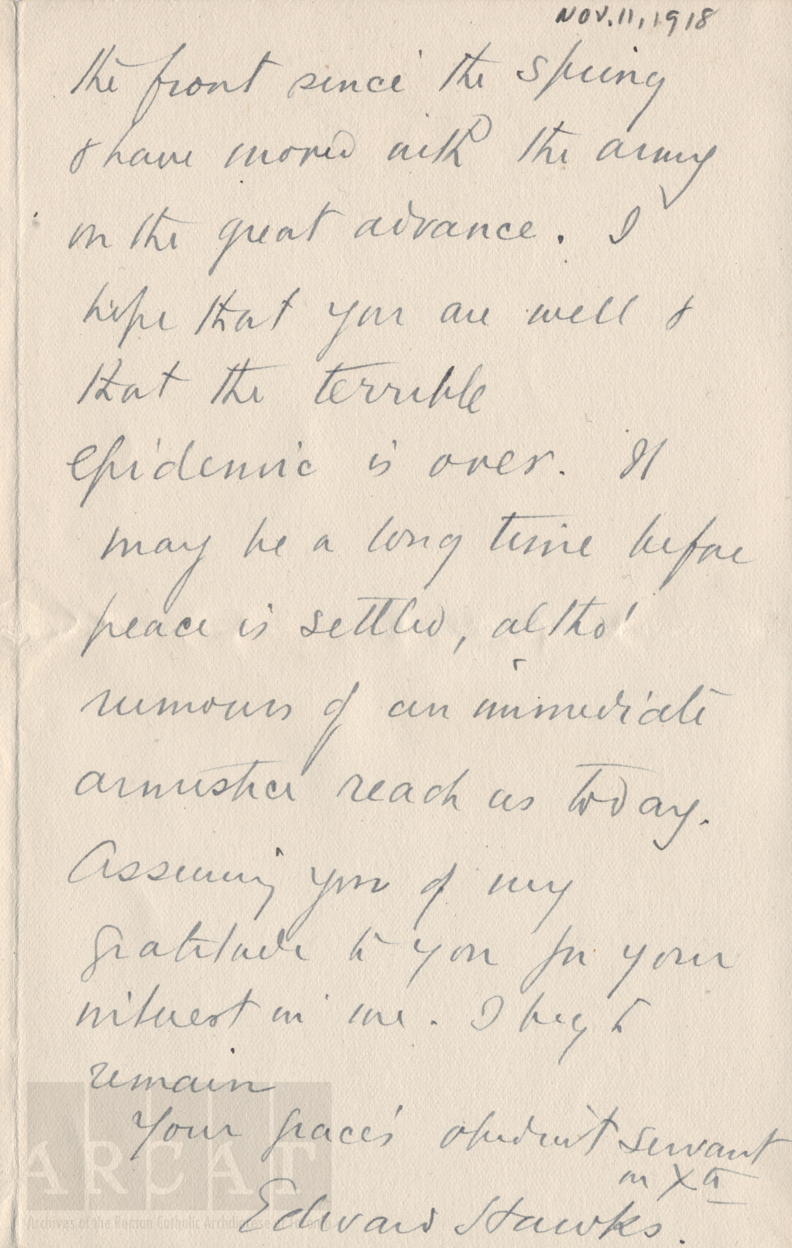 NOV. 11, 1918
the front since the spring
& have moved with the army
on the great advance. I
hope that you are well &
that the terrible
epidemic is over. It
may be a long time before
peace is settled, altho'
rumours of an immediate
armistice reach us today.
Assuring you of my
gratitude to you for your
interest in me. I beg to
remain
Your Grace's obedient servant
in Xto
Edward Hawks.
ARCAT
Archives of the Roman Catholic Archdiocese of Toronto